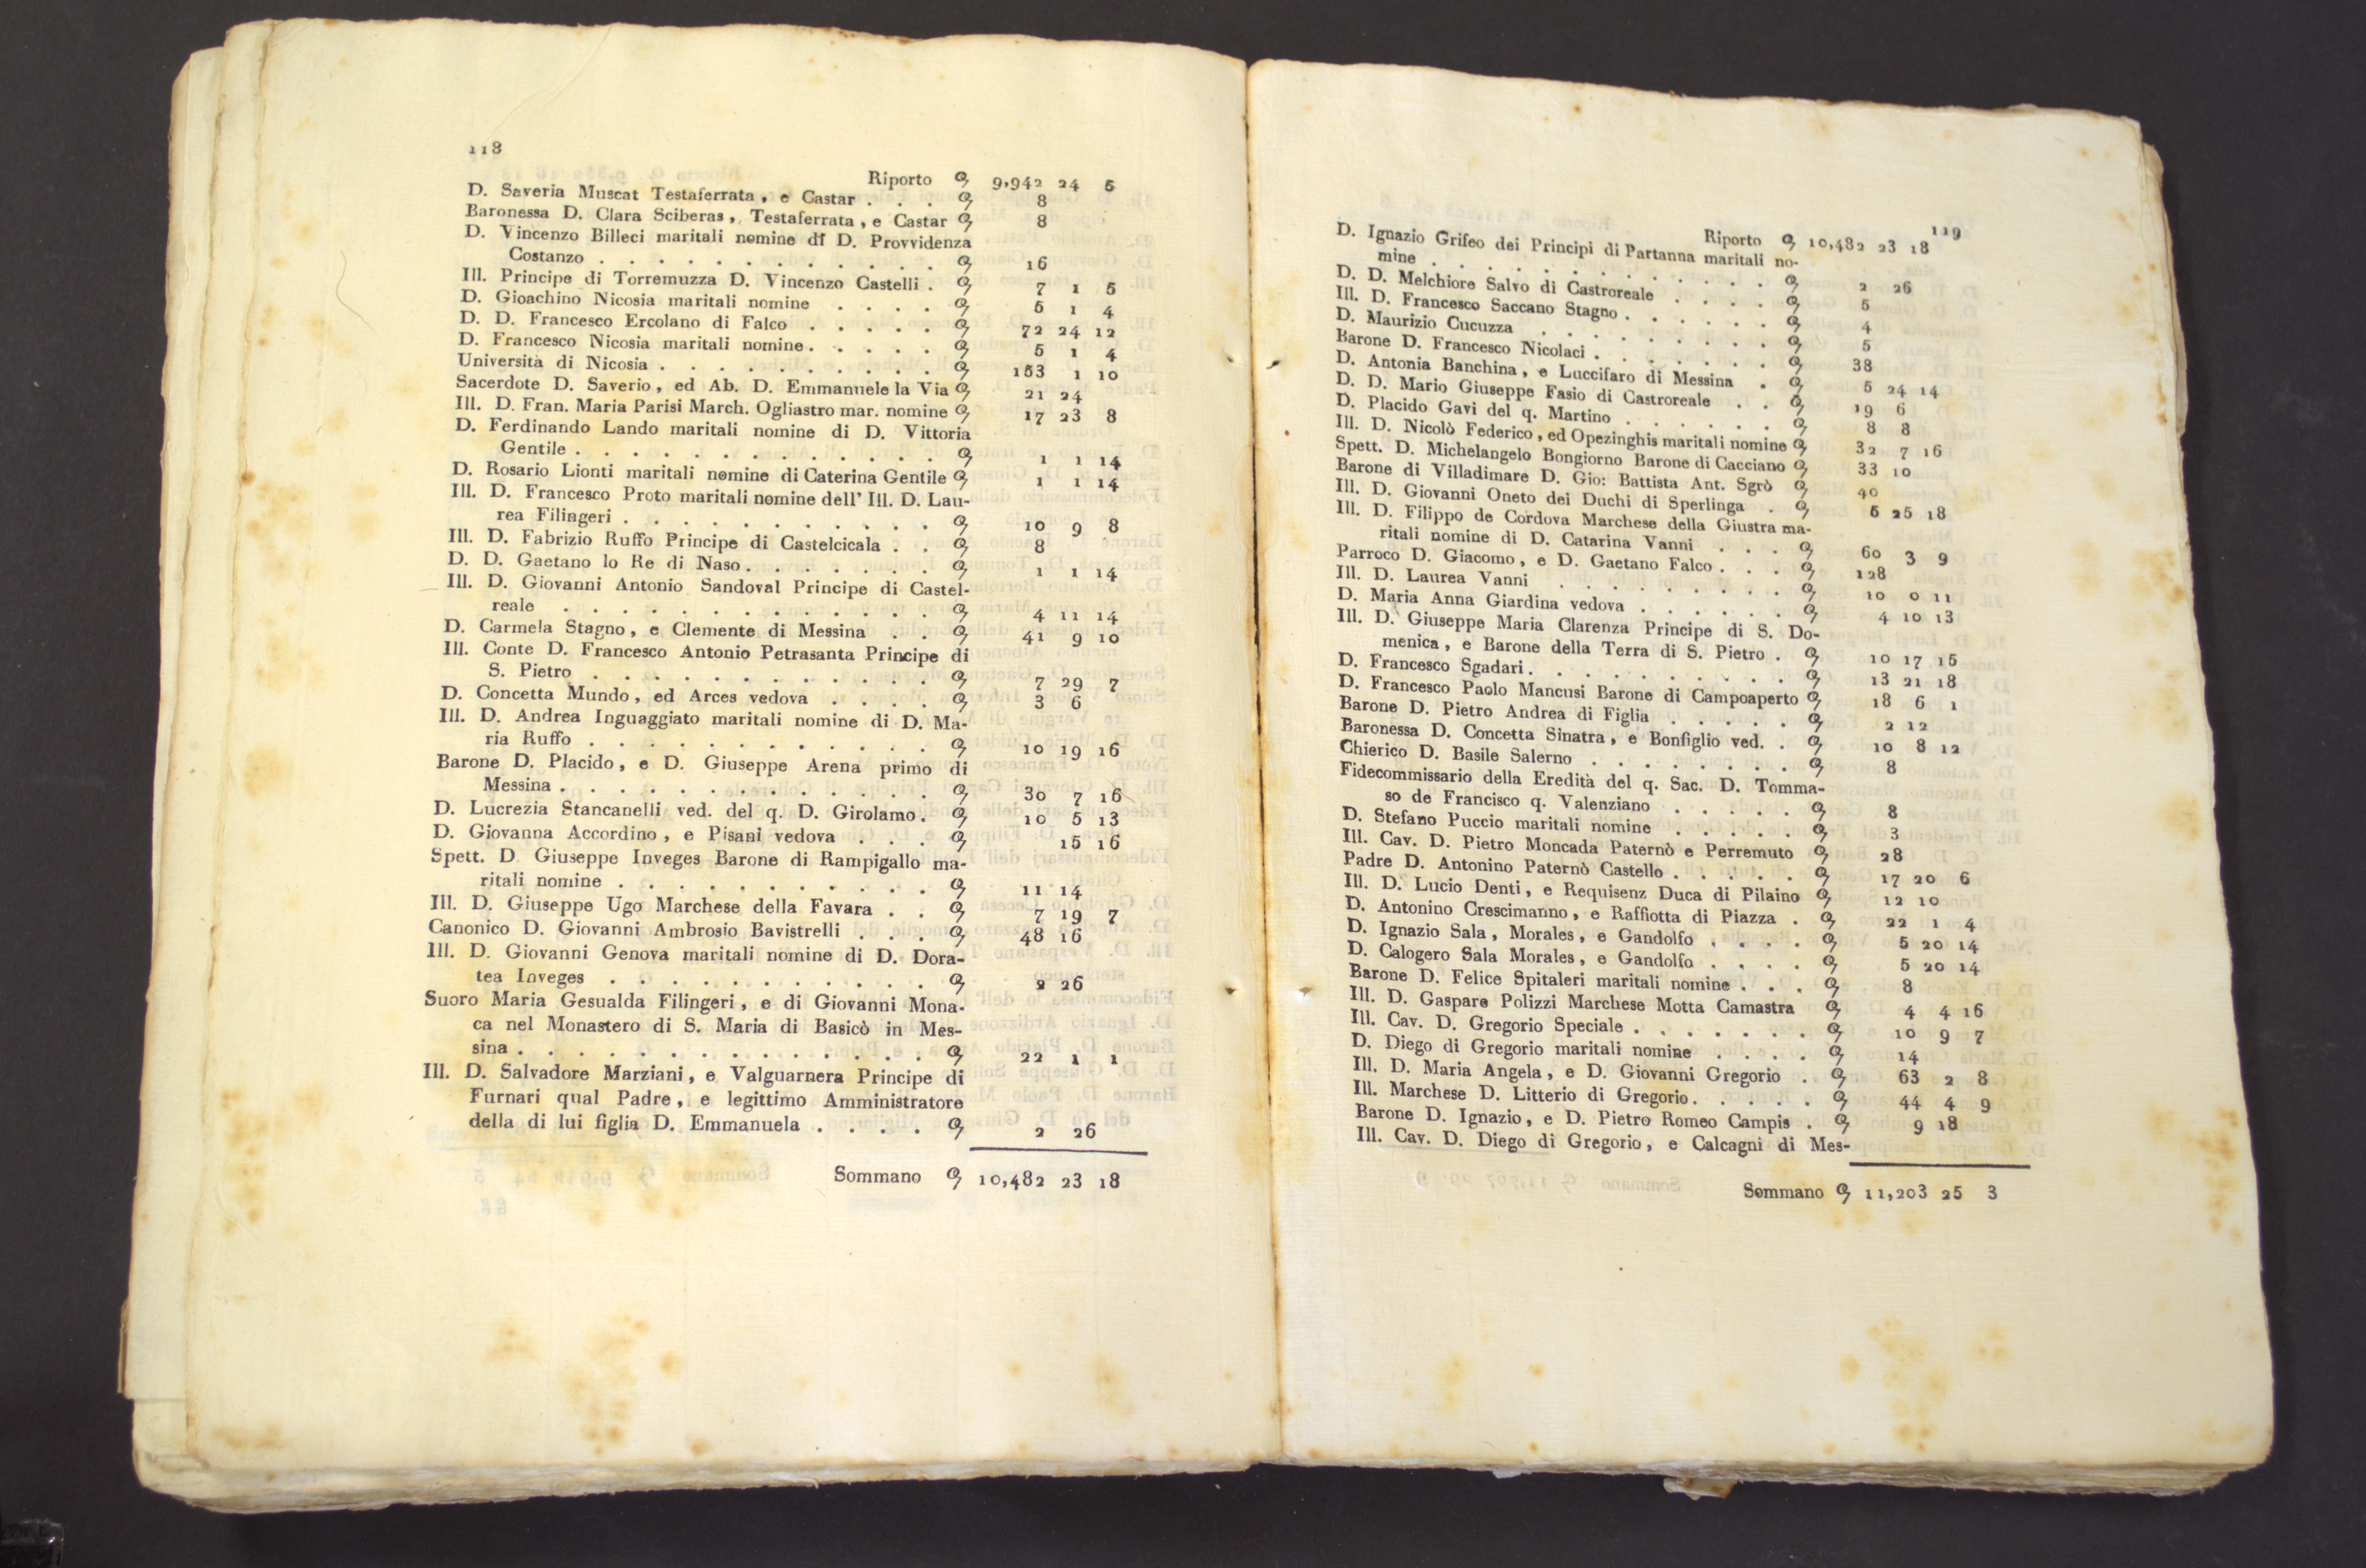 118
Riporto 9,942 24 5
D. Saveria Muscat Testaferrata, e Castar . . . 8
Baronessa D. Clara Sciberas, Testaferrata, e Castar 8
D. Vincenzo Billeci maritali nomine di D. Provvidenza
Costanzo . . . . . . . . . . . . 16
Ill. Principe di Torremuzza D. Vincenzo Castelli . 7 1 5
D. Gioachino Nicosia maritali nomine . . . . 5 1 4
D. D. Francesco Ercolano di Falco . . . . . 72 24 12
D. Francesco Nicosia maritali nomine . . . . . 5 1 4
Università di Nicosia . . . . . . . . . . 153 1 10
Sacerdote D. Saverio, ed Ab. D. Emmanuele la Via 21 24
Ill. D. Fran. Maria Parisi March. Ogliastro mar. nomine 17 23 8
D. Ferdinando Lando maritali nomine di D. Vittoria
Gentile . . . . . . . . . . . . . 1 1 14
D. Rosario Lionti maritali nomine di Caterina Gentile 1 1 14
Ill. D. Francesco Proto maritali nomine dell' Ill. D. Lau-
rea Filingeri . . . . . . . . . . . 10 9 8
Ill. D. Fabrizio Ruffo Principe di Castelcicala . . 8
D. D. Gaetano lo Re di Naso . . . . . . . 1 1 14
Ill. D. Giovanni Antonio Sandoval Principe di Castel-
reale . . . . . . . . . . . . . 4 11 14
D. Carmela Stagno, e Clemente di Messina . . 41 9 10
Ill. Conte D. Francesco Antonio Petrasanta Principe di
S. Pietro . . . . . . . . . . . . 7 29 7
D. Concetta Mundo, ed Arces vedova . . . . 3 6
Ill. D. Andrea Inguaggiato maritali nomine di D. Ma-
ria Ruffo . . . . . . . . . . . . 10 19 16
Barone D. Placido, e D. Giuseppe Arena primo di
Messina . . . . . . . . . . . . . 30 7 16
D. Lucrezia Stancanelli ved. del q. D. Girolamo . 10 5 13
D. Giovanna Accordino, e Pisani vedova . . . 15 16
Spett. D Giuseppe Inveges Barone di Rampigallo ma-
ritali nomine . . . . . . . . . . . 11 14
Ill. D. Giuseppe Ugo Marchese della Favara . . 7 19 7
Canonico D. Giovanni Ambrosio Bavistrelli . . . 48 16
Ill. D. Giovanni Genova maritali nomine di D. Dora-
tea Inveges . . . . . . . . . . . 2 26
Suoro Maria Gesualda Filingeri, e di Giovanni Mona-
ca nel Monastero di S. Maria di Basicò in Mes-
sina . . . . . . . . . . . . . . 22 1 1
Ill. D. Salvadore Marziani, e Valguarnera Principe di
Furnari qual Padre, e legittimo Amministratore
della di lui figlia D. Emmanuela . . . . 2 26
Sommano 10,482 23 18
119
Riporto 10,482 23 18
D. Ignazio Grifeo dei Principi di Partanna maritali no-
mine . . . . . . . . . . . . 2 26
D. D. Melchiore Salvo di Castroreale . . . . 5
Ill. D. Francesco Saccano Stagno . . . . . . 4
D. Maurizio Cucuzza . . . . . . . . 5
Barone D. Francesco Nicolaci . . . . . . . 38
D. Antonia Banchina, e Luccifaro di Messina . 5 24 14
D. D. Mario Giuseppe Fasio di Castroreale . . 19 6
D. Placido Gavi del q. Martino . . . . . . 8 8
Ill. D. Nicolò Federico, ed Opezinghis maritali nomine 32 7 16
Spett. D. Michelangelo Bongiorno Barone di Cacciano 33 10
Barone di Villadimare D. Gio: Battista Ant. Sgrò 40
Ill. D. Giovanni Oneto dei Duchi di Sperlinga . 5 25 18
Ill. D. Filippo de Cordova Marchese della Giustra ma-
ritali nomine di D. Catarina Vanni . . . 60 3 9
Parroco D. Giacomo, e D. Gaetano Falco . . . 128
Ill. D. Laurea Vanni . . . . . . . . 10 0 11
D. Maria Anna Giardina vedova . . . . . . 4 10 13
Ill. D. Giuseppe Maria Clarenza Principe di S. Do-
menica, e Barone della Terra di S. Pietro . 10 17 15
D. Francesco Sgadari . . . . . . . . . 13 21 18
D. Francesco Paolo Mancusi Barone di Campoaperto 18 6 1
Barone D. Pietro Andrea di Figlia . . . . . 2 12
Baronessa D. Concetta Sinatra, e Bonfiglio ved. . 10 8 12
Chierico D. Basile Salerno . . . . . . . . 8
Fidecommissario della Eredità del q. Sac. D. Tomma-
so de Francisco q. Valenziano . . . . . 8
D. Stefano Puccio maritali nomine . . . . . 3
Ill. Cav. D. Pietro Moncada Paternò e Perremuto 28
Padre D. Antonino Paternò Castello . . . . . 17 20 6
Ill. D. Lucio Denti, e Requisenz Duca di Pilaino 12 10
D. Antonino Crescimanno, e Raffiotta di Piazza . 22 1 4
D. Ignazio Sala, Morales, e Gandolfo . . . . 5 20 14
D. Calogero Sala Morales, e Gandolfo . . . . 5 20 14
Barone D. Felice Spitaleri maritali nomine . . . 8
Ill. D. Gaspare Polizzi Marchese Motta Camastra 4 4 16
Ill. Cav. D. Gregorio Speciale . . . . . . . 10 9 7
D. Diego di Gregorio maritali nomine . . . . 14
Ill. D. Maria Angela, e D. Giovanni Gregorio . 63 2 8
Ill. Marchese D. Litterio di Gregorio . . . . . 44 4 9
Barone D. Ignazio, e D. Pietro Romeo Campis . 9 18
Ill. Cav. D. Diego di Gregorio, e Calcagni di Mes-
Sommano 11,203 25 3